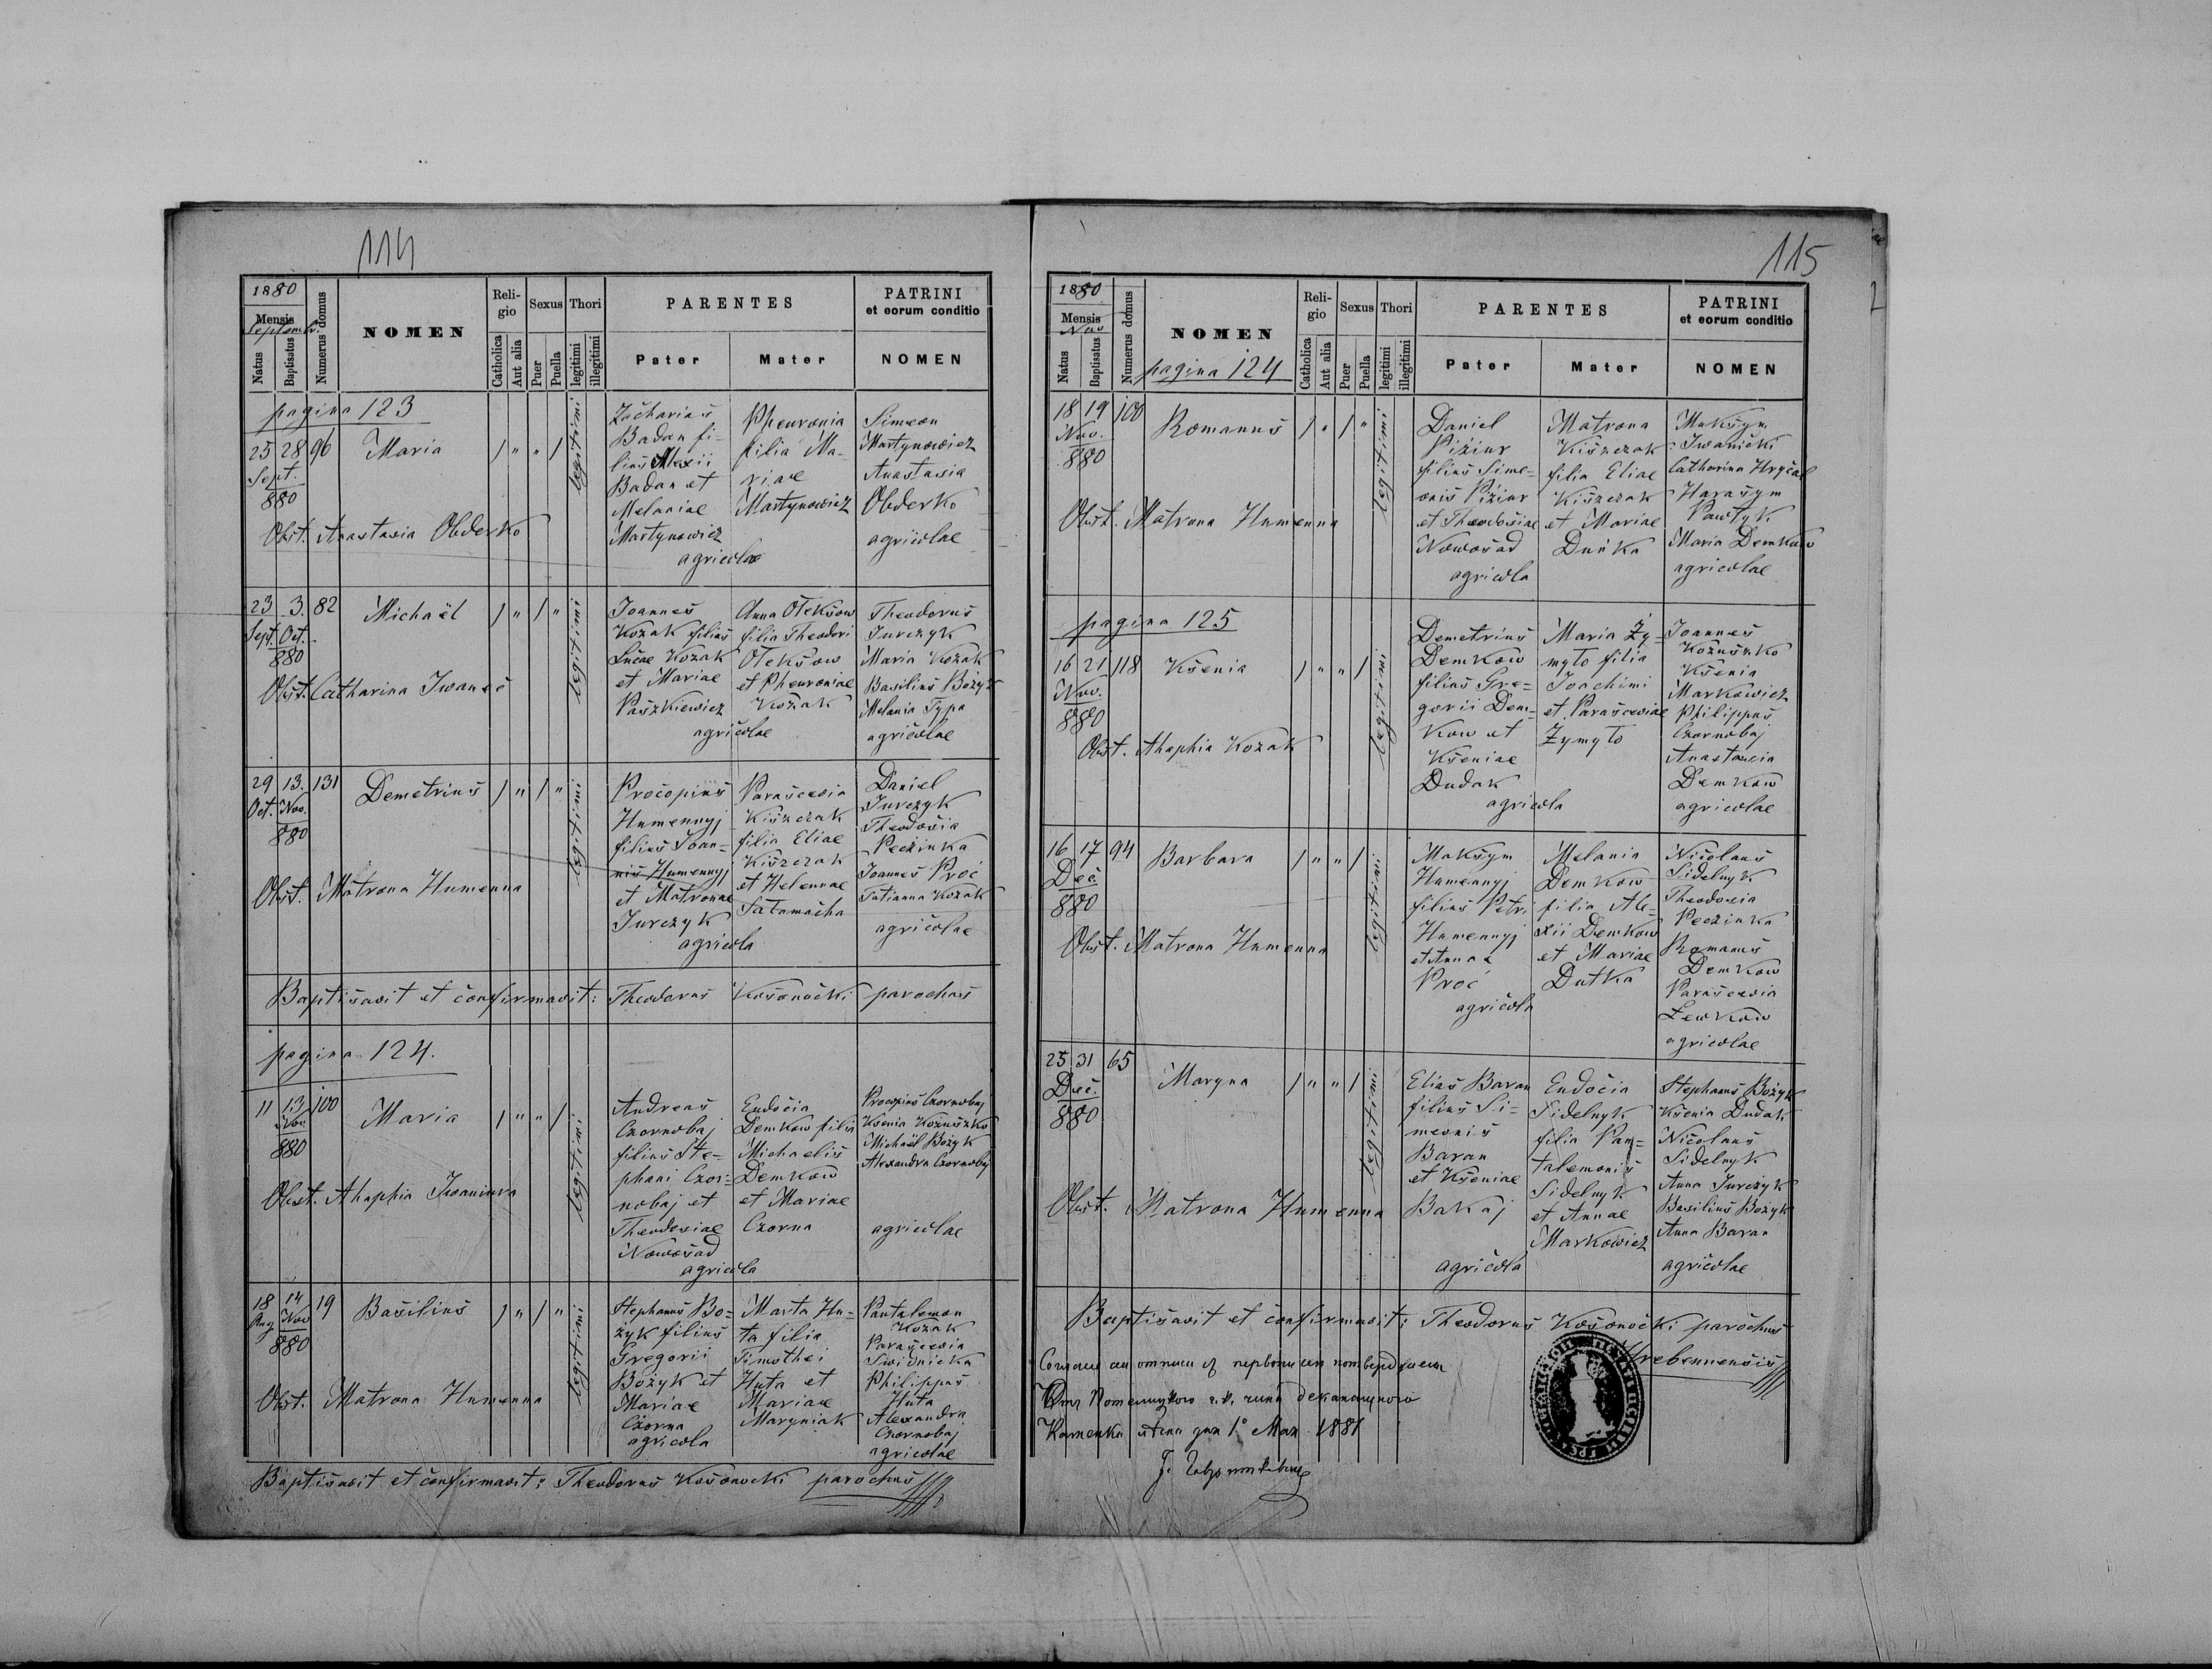 114
1880
Mensis
Septembr.
Natus
Baptisatus
Numerus domus
NOMEN
Reli-
gio
Catholica
Aut alia
Sexus
Puer
Puella
Thori
legitimi
illegitimi
PARENTES
Pater
Mater
PATRINI
et eorum conditio
NOMEN
pagina 123
25 28 96 Maria / " " /
Sept.
880
legitimi
Obst. Anastasia Obderko
Zacharias
Badan fi-
lius Alexii
Badan et
Melaniae
Martynowicz
agricolae
Pheuronia
filia Ma-
riae
Martynowicz
Simeon
Martynowicz
Anastasia
Obderko
agricolae
23 3. 82 Michaël / " / "
Sept. Oct.
880
legitimi
Obst. Catharina Iwaneć
Joannes
Kozak filius
Lucae Kozak
et Mariae
Paszkiewicz
agricolae
Anna Olekšow
filia Theodori
Olekšow
et Pheuroniae
Kozak
Theodorus
Jurczyk
Maria Kozak
Basilius Bożyk
Melania Typa
agricolae
29 13. 131 Demetrius / " / "
Oct. Nov.
880
legitimi
Obst. Matrona Humenna
Procopius
Humennyj
filius Joan-
nis Humennyj
et Matronae
Jurczyk
agricola
Parascevia
Kiszczak
filia Eliae
Kiszczak
et Helennae
Sałamacha
Daniel
Jurczyk
Theodosia
Peczinka
Joannes Proć
Tatianna Kozak
agricolae
Baptisavit et confirmavit: Theodorus Kosonocki parochus
pagina 124.
11 13 100 Maria / " " /
Nov.
880
legitimi
Obst. Ahaphia Iwaniura
Andreas
Czornobaj
filius Ste-
phani Czor-
nobaj et
Theodosiae
Nowosad
agricola
Eudocia
Demkow filia
Michaelis
Demkow
et Mariae
Czorna
Procopius Czornobaj
Ksenia Kozuszko
Michaël Bożyk
Alexandra Czornobaj
agricolae
18 14 19 Basilius / " / "
Aug Nov
880
legitimi
Obst. Matrona Humenna
Stephanus Bo-
żyk filius
Gregorii
Bożyk et
Mariae
Czorna
agricola
Marta Hu-
ta filia
Timothei
Huta et
Mariae
Maryniak
Pantalemon
Kozak
Parascevia
Swidnicka
Philippus
Huta
Alexandra
Czornobaj
agricolae
Baptisavit et confirmavit: Theodorus Kosonocki parochus
115
1880
Mensis
Nov
Natus
Baptisatus
Numerus domus
NOMEN
pagina 124
Reli-
gio
Catholica
Aut alia
Sexus
Puer
Puella
Thori
legitimi
illegitimi
PARENTES
Pater
Mater
PATRINI
et eorum conditio
NOMEN
18 19 100 Romanus / " / "
Nov.
880
legitimi
Obst. Matrona Humenna
Daniel
Piziur
filius Sime-
onis Piziur
et Theodosiae
Nowosad
agricola
Matrona
Kiszczak
filia Eliae
Kiszczak
et Mariae
Duńka
Maksym
Iwanicki
Catharina Hrycak
Harasym
Pawłyk
Maria Demkow
agricolae
pagina 125
16 21 118 Ksenia / " " /
Nov.
880
legitimi
Obst. Ahaphia Kozak
Demetrius
Demkow
filius Gre-
gorii Dem-
kow et
Kseniae
Dudak
agricola
Maria Ży-
myło filia
Joachimi
et Parasceviae
Żymyło
Joannes
Kozuszko
Ksenia
Markowicz
Philippus
Czornobaj
Anastasia
Demkow
agricolae
16 17 94 Barbara / " " /
Dec.
880
legitimi
Obst. Matrona Humenna
Maksym
Humennyj
filius Petri
Humennyj
et Annae
Proć
agricola
Melania
Demkow
filia Ale-
xii Demkow
et Mariae
Dutka
Nicolaus
Sidelnyk
Theodosia
Peczinka
Romanus
Demkow
Parascevia
Lewkow
agricolae
25 31 65 Maryna / " " /
Dec.
880
legitimi
Obst. Matrona Humenna
Elias Baran
filius Si-
meonis
Baran
et Kseniae
Bakaj
agricola
Eudocia
Sidelnyk
filia Pan-
talemonis
Sidelnyk
et Annae
Markowicz
Stephanus Bożyk
Ksenia Dudak
Nicolaus
Sidelnyk
Anna Jurczyk
Basilius Bożyk
Anna Baran
agricolae
Baptisavit et confirmavit: Theodorus Kosonocki parochus
Hrebennensis
деканального
дня 1° Мая 1881